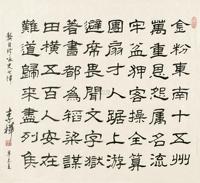 金粉東南十五州
萬重恩怨屬名流
牢盆狎客操全算
團扇才人踞上游
避席畏聞文字獄
著書都為稻粱謀
田橫五百人安在
難道歸來盡列侯
龔自珍詠史七律